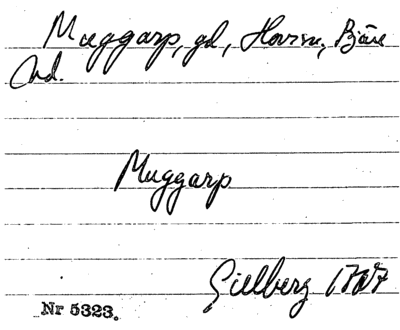 Muggarp, gd, Hovsn, Bjäre
hd.
Muggarp
Gillberg 1767
Nr 5323.